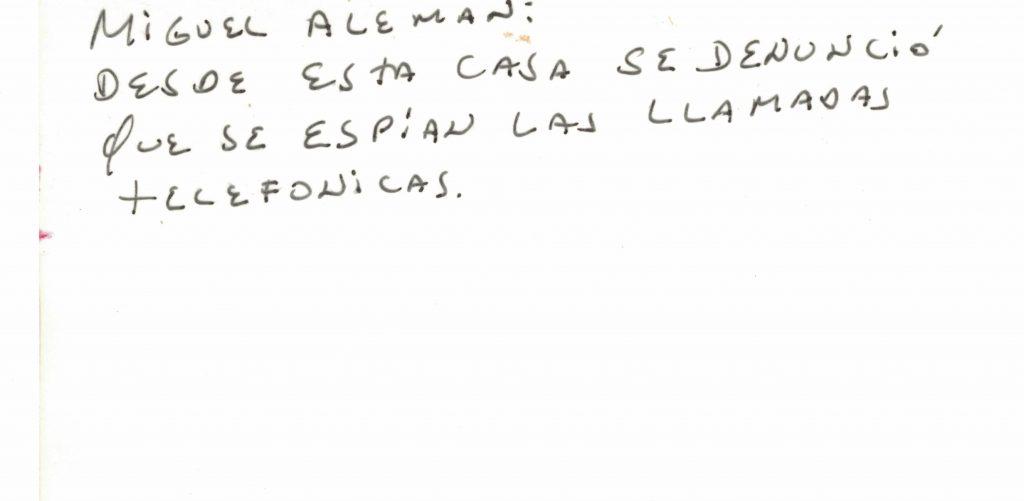 MiGUEL ALEMAN:
DESDE ESTA CASA SE DENUNCiÓ
QUE SE ESPÍAN LAS LLAMADAS
TELEFONiCAS.